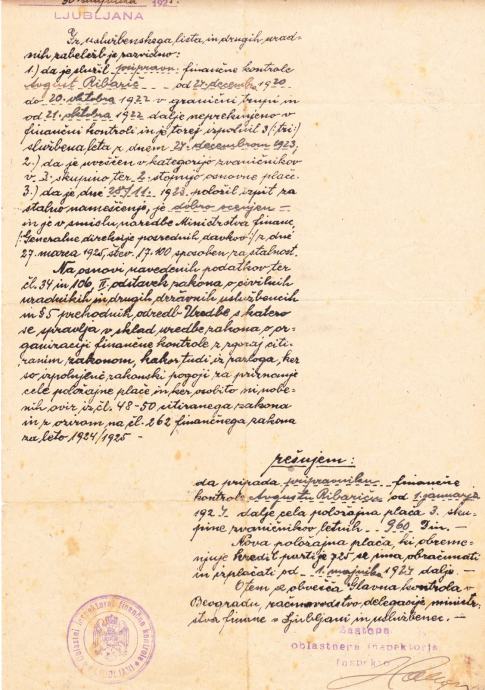 LJUBLJANA
Iz uslužbenskega lista in drugih urad-
nih zabeležb je razvidno:
1.) da je služil pripravnik finančne kontrole
Avgust Ribarič od 21. decembra 1920
do 20. oktobra 1922 v granični trupi in
od 21. oktobra 1922 dalje neprekinjeno v
finančni kontroli in je torej izpolnil 3 (:tri:)
službena leta z dnem decembrom 1923,
2.) da je uvrščen v kategorijo zvaničnikov
v 3. skupino ter 2. stopnjo osnovne plače.
3.) da je dne 28/11. 1923 položil izpit za
stalno nameščenje, je dobro ocenjen
in je v smislu naredbe Ministrstva financ
(:Generalne direkcije posrednih davkov:) z dne
27. marca 1925, štev. 17.100 sposoben za stalnost.
Na osnovi navedenih podatkov ter
čl. 34 in 106, II. odstavek zakona o civilnih
uradnikih in drugih državnih uslužbencih
in §5 prehodnih odredb Uredbe s katero
se spravlja v sklad uredbe zakona o or-
ganizaciji finančne kontrole z zgoraj citi-
ranim zakonom, kakor tudi iz razloga, ker
so izpolnjeni zakonski pogoji za priznanje
cele položajne plače in ker osobito ni nobe-
nih ovir iz čl. 48-50 citiranega zakona
in z ozirom na čl. 262 finančnega zakona
za leto 1924/1925 -
rešujem:
da pripada pripravniku finančne
kontrole Avgustu Ribariču od 1. januarja
192 dalje cela položajna plača 3. sku-
pine zvaničnikov letnih 960 Din. -
Nova položajna plača, ki obreme-
njuje kredit partije 725 se ima obračunati
in izplačati od 1. majnika dalje. -
O tem se obvešča Glavna kontrola v
Beogradu, računovodstvo delegacije ministr-
stva financ v Ljubljani in uslužbenec. -
Zastopa
oblastnega inspektorja